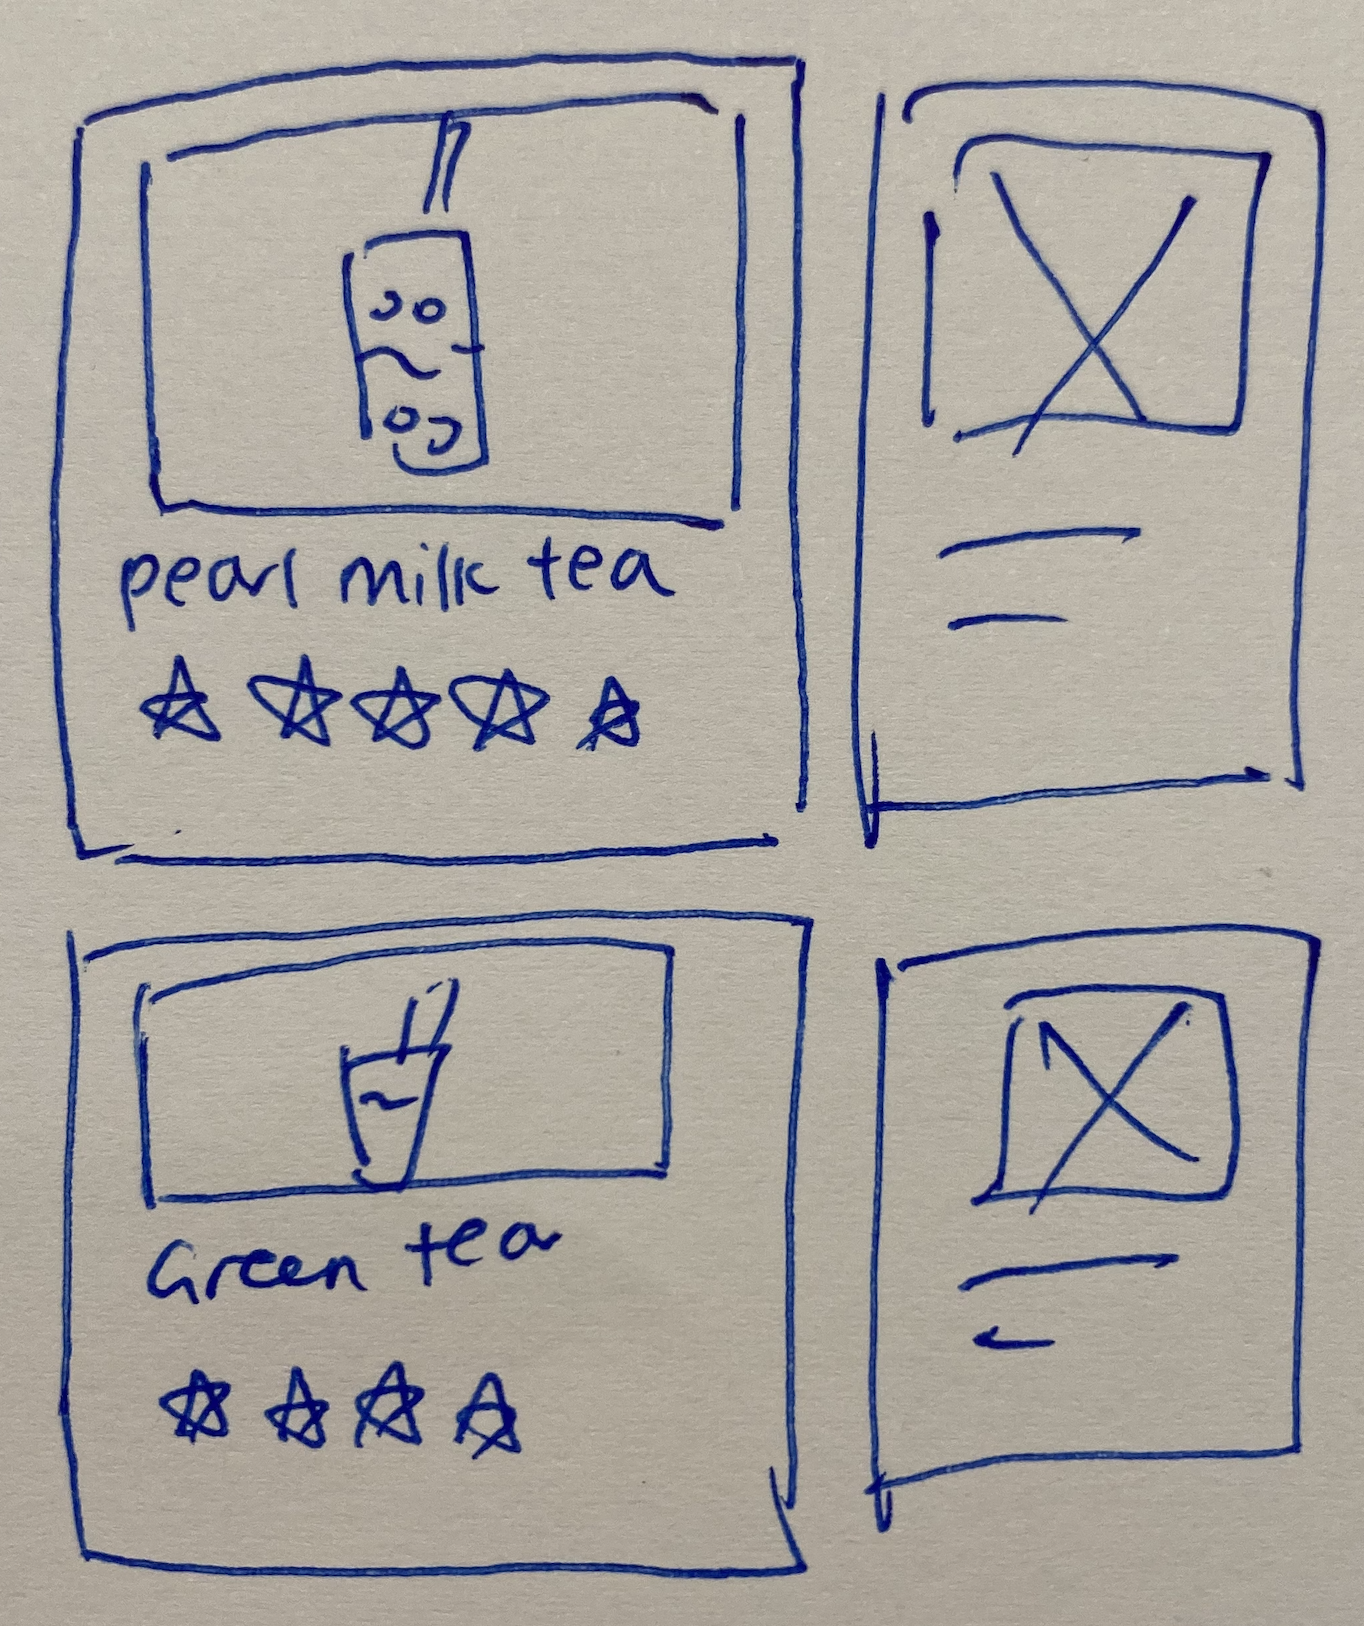 pearl milk tea
Green tea